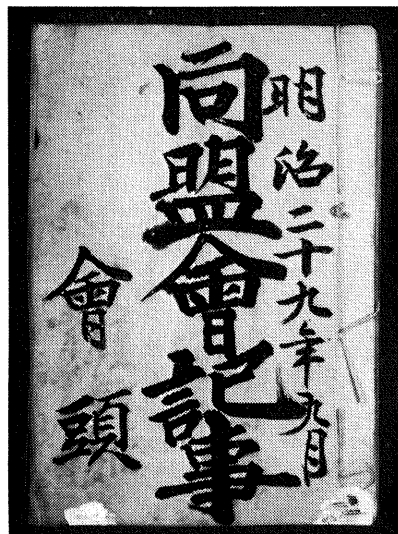 明治二十九年九月
同盟會記事
會頭